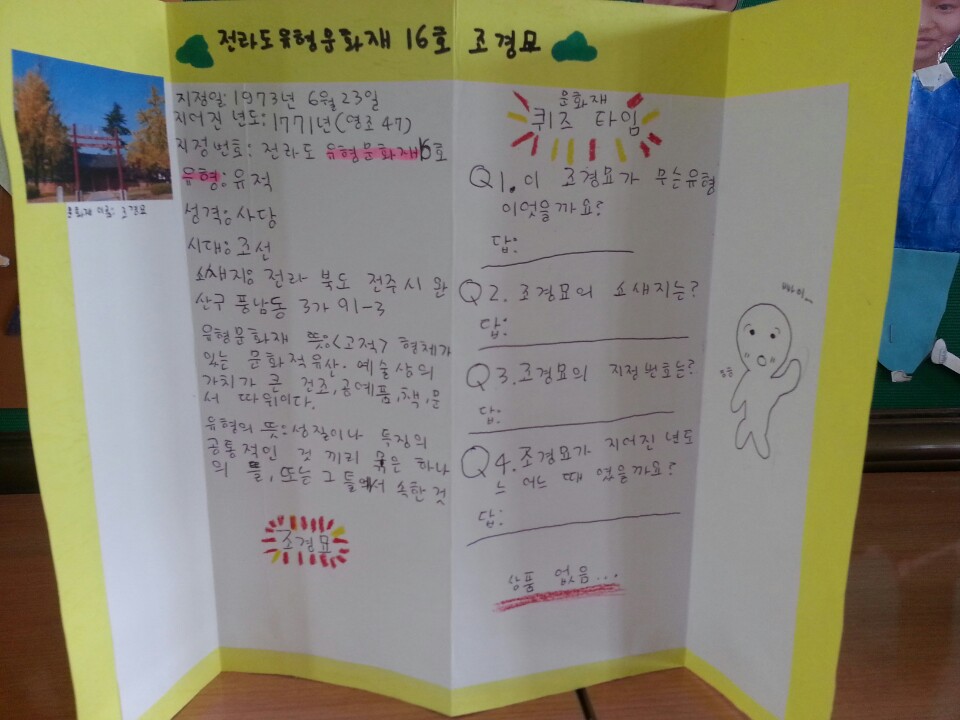 전라도유형문화재 16호 조경묘
문화재 이름: 조경묘
지정일: 1973년 6월 23일
지어진 년도: 1771년(영조 47)
지정번호: 전라도 유형문화재16호
유형: 유적
성격: 사당
시대: 조선
소새지: 전라 북도 전주시 완
산구 풍남동 3가 91-3
유형문화재 뜻: <고적> 형체가
있는 문화적유산. 예술상의
가치가 큰 건조, 공예품, 책, 문
서 따위이다.
유형의 뜻: 성질이나 특징의
공통적인 것 끼리 묶은 하나
의 틀, 또는 그 틀에서 속한 것
조경묘
문화재
퀴즈 타임
Q1. 이 조경묘가 무슨유형
이었을까요?
답:
Q2. 조경묘의 소새지는?
답:
Q3. 조경묘의 지정번호는?
답:
Q4. 조경묘가 지어진 년도
는 어느 때 였을까요?
답:
상품 없음...
빠이...